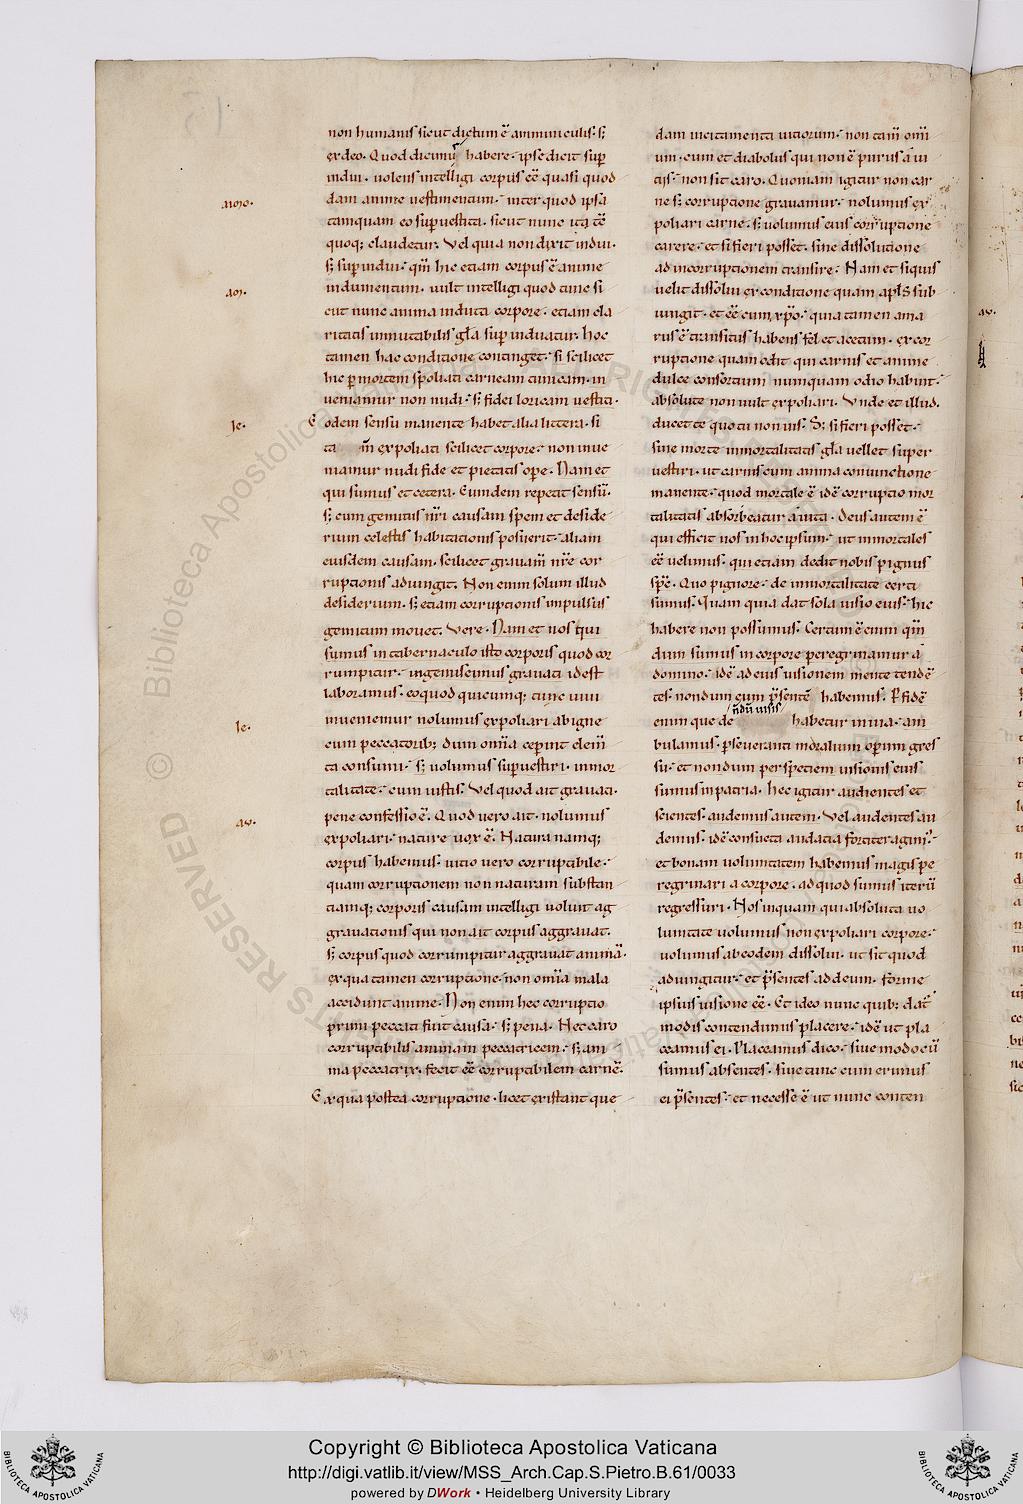 non humanis sicut dictum ē amminiculis· s;
ex deo. Quod dicimur habere· ipse dicit sup
indui· uolens intelligi corpus eē quasi quod
dam anime uestimentum· inter quod ipsa
tamquam eo supuestita· sicut nunc ita tc̄
quoq; claudetur. Vel quia non dixit indui·
s; sup indui· qm̄ hic etiam corpus ē anime
indumentum· uult intelligi quod tunc si
cut nunc anima induta corpore· etiam cla
ritatis inmutabilis gl̄a sup induatur. hoc
tamen hac conditione continget· si scilicet
hic p mortem spoliati carneam tunicam· in
ueniamur non nudi· s; fidei loricam uestiti·
Eodem sensu manente habet alia littera· si
ta m̄ expoliati scilicet corpore· non inue
niamur nudi fide et pietatis ope. Nam et
qui sumus et cetera. Eumdem repetit sensū·
s; cum gemitus nr̄i causam spem et deside
rium celestis habitationis posuerit· aliam
eiusdem causam· scilicet grauam̄ nr̄e cor
ruptionis adiungit. Non enim solum illud
desiderium· s; etiam corruptionis inpulsus
gemitum mouet. Vere· Nam et nos qui
sumus in tabernaculo isto corporis quod cor
rumpitur· ingemiscimus grauati idest
laboramus· eo quod quicumq; tunc uiui
inueniemur nolumus expoliari ab igne
cum peccatorib; dum om̄ia ceperint elem̄
ta consumi· s; uolumus supuestiri· inmor
talitate· cum iustis. Vel quod ait grauati·
pene confessio ē. Quod uero ait· nolumus
expoliari· nature uox ē. Natura namq;
corpus habemus· uitio uero corruptibile·
quam corruptionem non naturam substan
tiamq; corporis causam intelligi uoluit ag
grauationis qui non ait corpus aggrauat.
s; corpus quod corrumpitur aggrauat animā·
ex qua tamen corruptione· non om̄ia mala
accidunt anime. Non enim hec corruptio
primi peccati fuit causa· s; pena. Nec caro
corruptibilis animam peccatricem· s; ani
ma peccatrix· fecit eē corruptibilem carnē·
Ex qua postea corruptione· licet existant que
dam incitamenta uitiorum· non tam̄ om̄i
um· cum et diabolus qui non ē purus a ui
tijs· non sit caro. Quoniam igitur non car
ne s; corruptione grauamur· nolumus ex
poliari carne· s; uolumus eius corruptione
carere· et si fieri posset· sine dissolutione
ad incorruptionem transire· Nam et si quis
uelit dissolui ex conditione quam apl̄s sub
iungit· et eē cum xp̄o· quia tamen ama
rus ē transitus habens fel et acetum· ex cor
ruptione quam odit qui carnis et anime
dulce consortium numquam odio habuit·
absolute non uult expoliari. Vnde et illud.
ducet te quo tu non uis. S; si fieri posset·
sine morte inmortalitatis gl̄a uellet super
uestiri· ut carnis cum anima coniunctione
manente· quod mortale ē idē corruptio mor
talitatis absorbeatur a uita· Deus autem ē
qui efficit nos in hoc ipsum· ut inmortales
eē uelimus· qui etiam dedit nobis pignus
sp̄c. Quo pignore· de inmortalitate certi
sumus. Quam quia dat sola uisio eius· hic
habere non possumus. Certum ē enim qm̄
dum sumus in corpore peregrinamur a
domino· idē ad eius uisionem mente tendē
tes· nondum eum p̄sentē habemus. P fidē
enim que de n̄dū uisis habetur in uia· am
bulamus· pseueranti moralium opum gres
su· et nondum per speciem uisionis eius
sumus in patria. hec igitur audientes et
scientes· audemus autem· Vel audentes au
demus· idē consueta audacia fortiter agim;
et bonam uoluntatem habemus magis pe
regrinari a corpore· ad quod sumus iterū
regressuri· Nos inquam qui absoluta uo
luntate uolumus non expoliari corpore·
uolumus ab eodem dissolui· ut sit quod
adiungitur· et p̄sentes ad deum· forme
ipsius uisione eē· Et ideo nunc quib; dat̄
modis contendimus placere· idē ut pla
ceamus ei· Placeamus dico· siue modo cū
sumus absentes· siue tunc cum erimus
ei p̄sentes· et necesse ē ut nunc conten
aug.
Ie.
Ie.
av.
av.
© Biblioteca Apostolica Vaticana
ALL RIGHTS RESERVED
Copyright © Biblioteca Apostolica Vaticana
http://digi.vatlib.it/view/MSS_Arch.Cap.S.Pietro.B.61/0033
powered by DWork • Heidelberg University Library
BIBLIOTECA APOSTOLICA VATICANA
BIBLIOTECA APOSTOLICA VATICANA